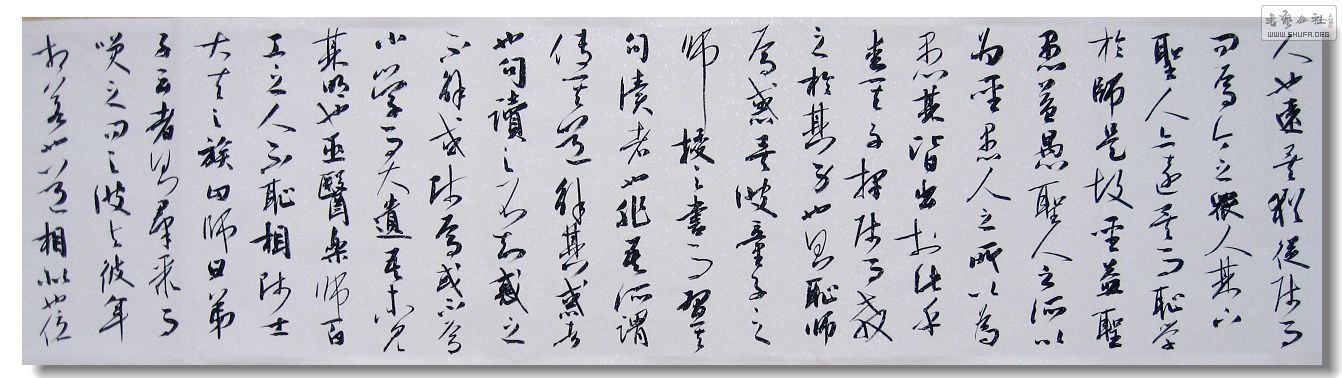 書藝公社
WWW.SHUFA.ORG
人也遠矣猶從師而
問焉今之眾人其下
聖人亦遠矣而恥學
於師是故聖益聖
愚益愚聖人之所以
為聖愚人之所以為
愚其皆出於此乎
愛其子擇師而教
之於其身也則恥師
焉惑矣彼童子之
師授之書而習其
句讀者也非吾所謂
傳其道解其惑者
也句讀之不知惑之
不解或師焉或不焉
小學而大遺吾未見
其明也巫醫樂師百
工之人不恥相師士
大夫之族曰師曰弟
子云者則群聚而
笑之問之彼與彼年
相若也道相似也位